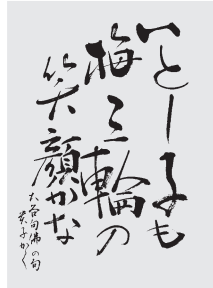 いとし子も
梅三輪の
笑顔かな
大谷句佛の句
子かく